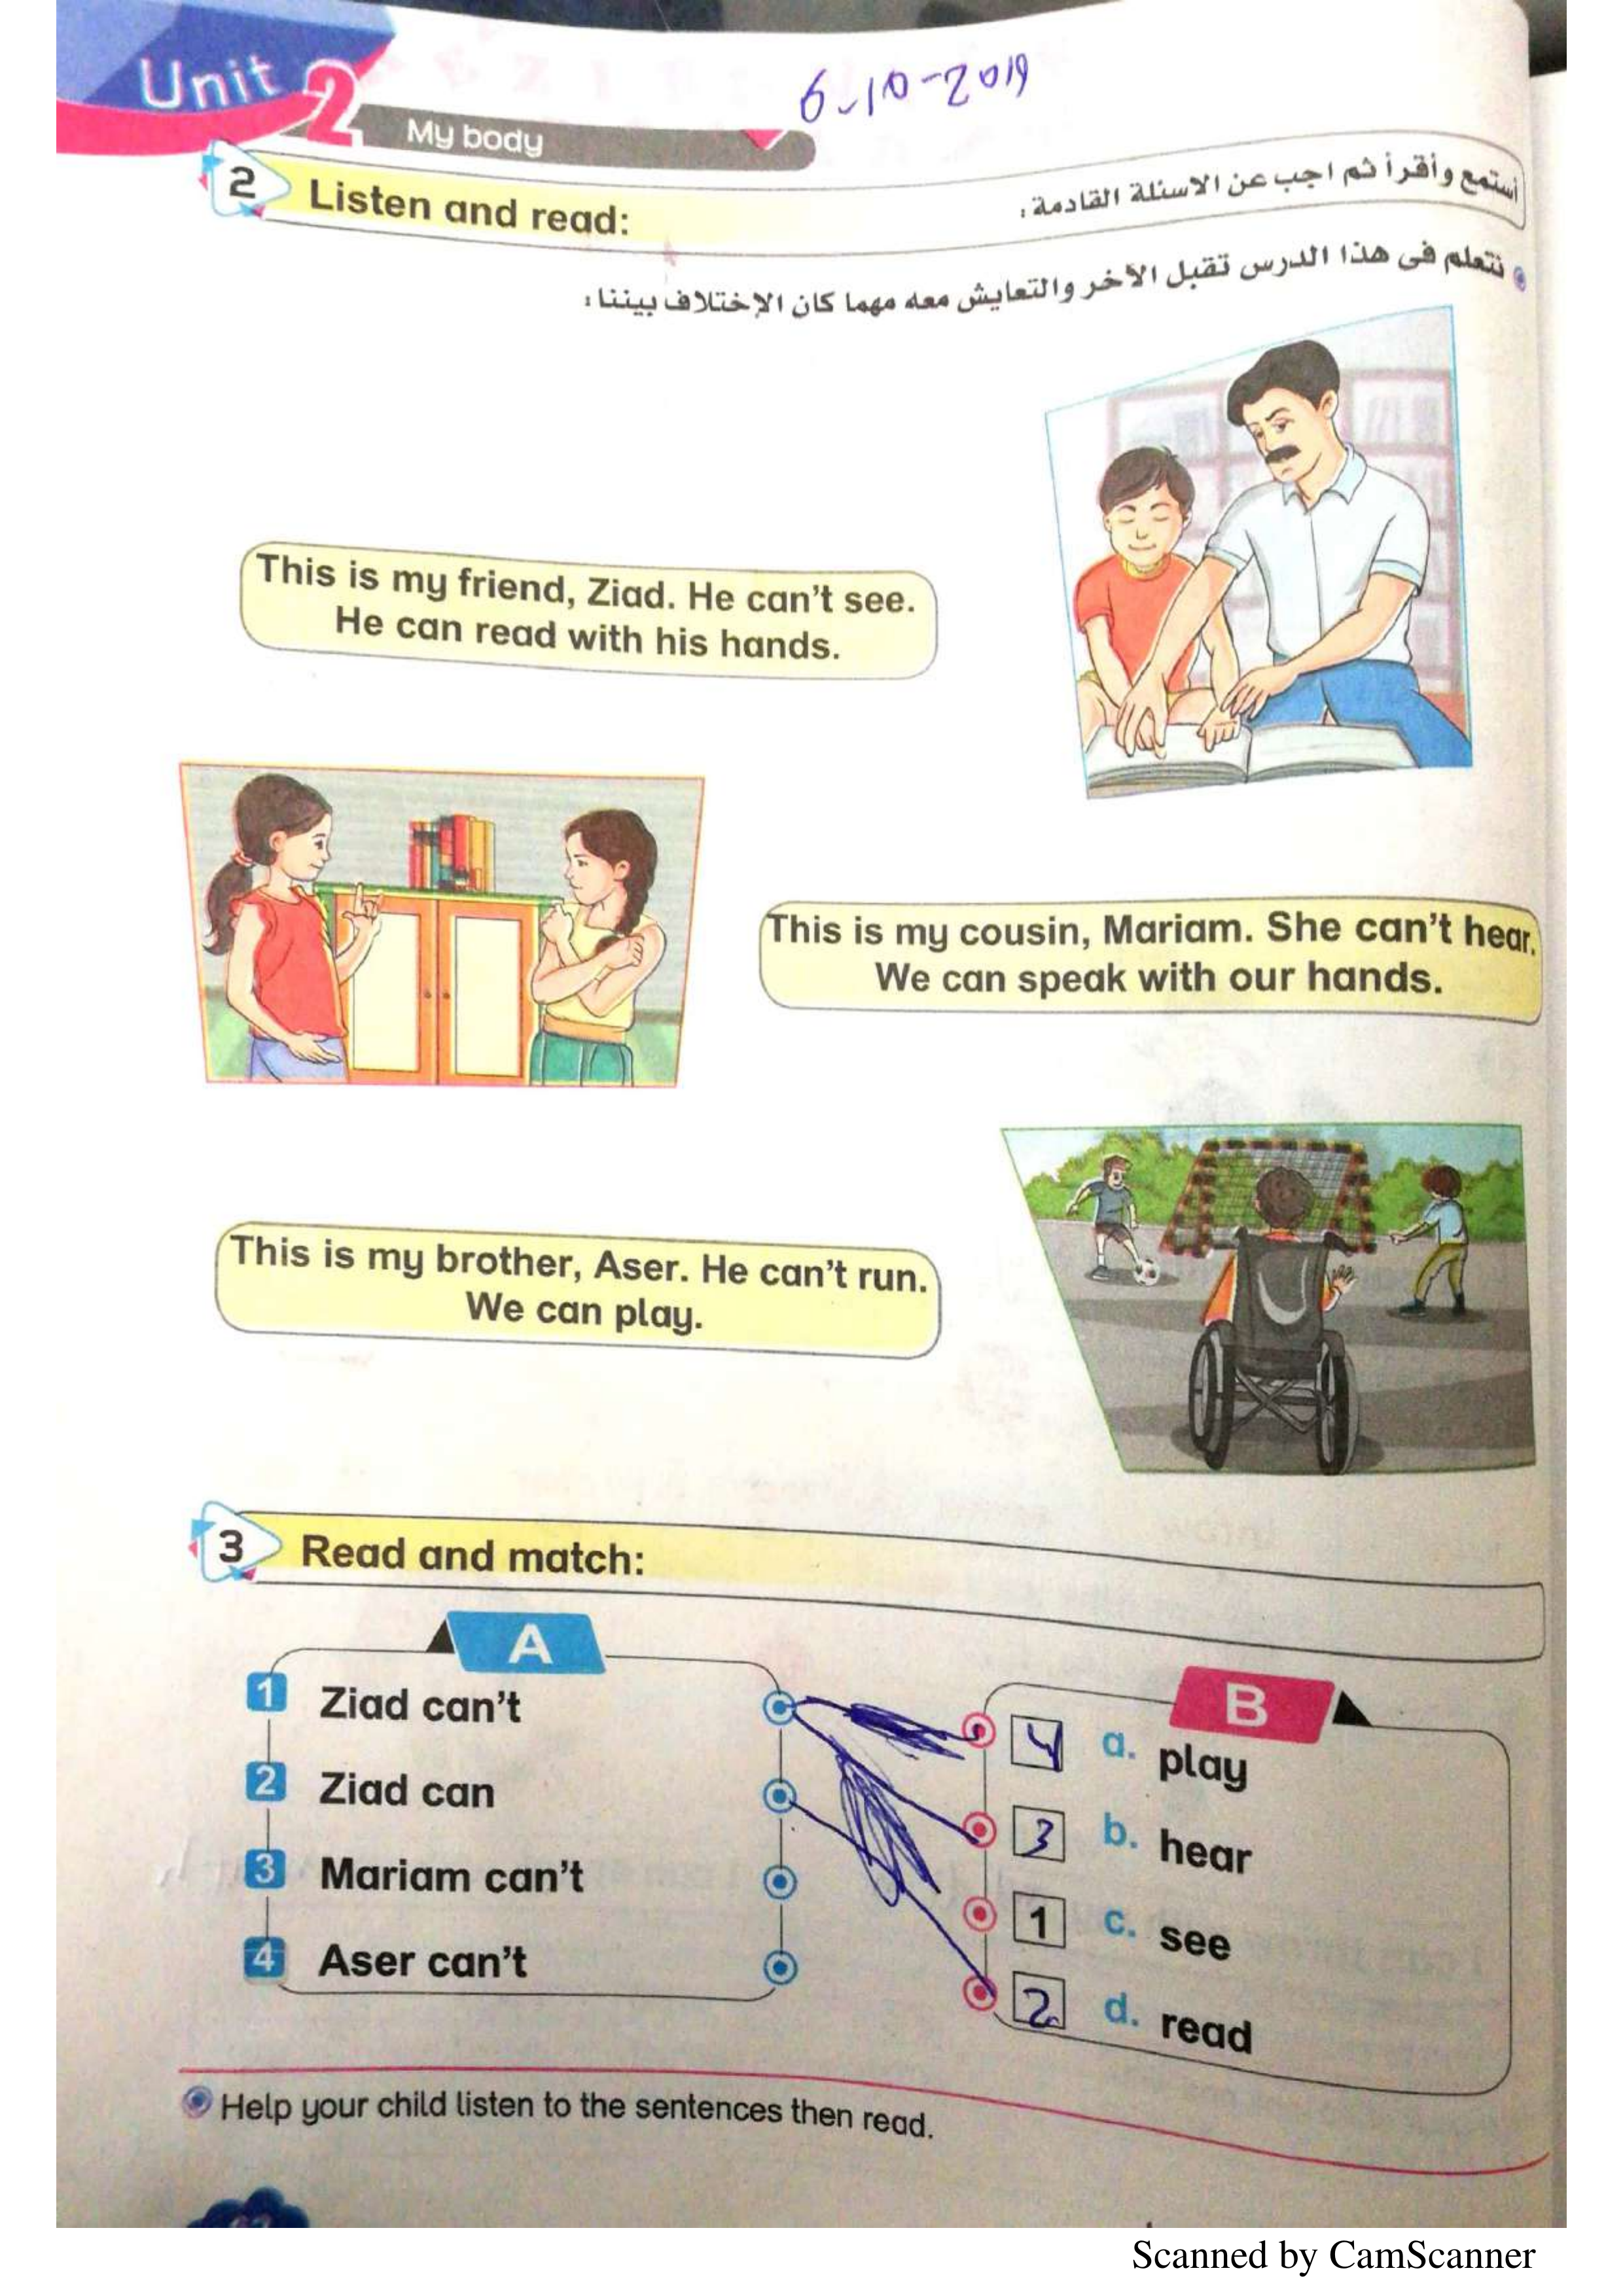 Unit 2
My body
6-10-2019
2 Listen and read:
أستمع وأقرأ ثم اجب عن الاسئلة القادمة :
نتعلم فى هذا الدرس تقبل الآخر والتعايش معه مهما كان الإختلاف بيننا :
This is my friend, Ziad. He can't see.
He can read with his hands.
This is my cousin, Mariam. She can't hear.
We can speak with our hands.
This is my brother, Aser. He can't run.
We can play.
3 Read and match:
A
1 Ziad can't
2 Ziad can
3 Mariam can't
4 Aser can't
B
4 a. play
3 b. hear
1 c. see
2 d. read
Help your child listen to the sentences then read.
Scanned by CamScanner